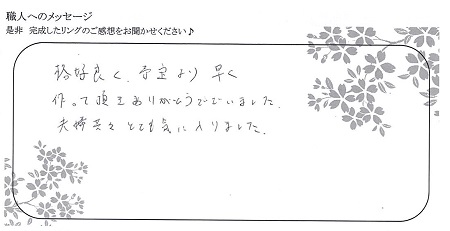 職人へのメッセージ
是非 完成したリングのご感想をお聞かせください♪
格好良く、予定より早く
作って頂きありがとうございました。
夫婦共々とても気に入りました。